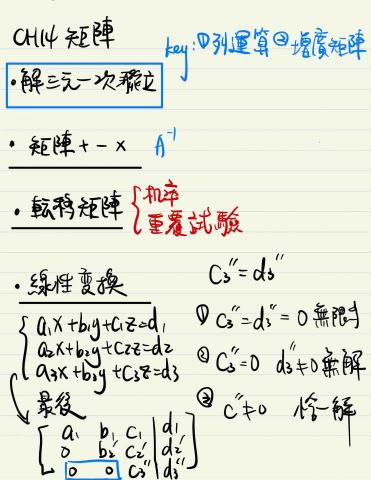 CH14 矩陣
key:①列運算②增廣矩陣
•解三元一次聯立
• 矩陣 + - × A⁻¹
• 転移矩陣 { 机率
重覆試驗
• 線性变換
{ a₁x+b₁y+c₁z=d₁
a₂x+b₂y+c₂z=d₂
a₃x+b₃y+c₃z=d₃
最後
[ a₁ b₁ c₁ | d₁
0 b₂' c₂' | d₂'
0 0 c₃'' | d₃'' ]
c₃''=d₃''
① c₃''=d₃''=0 無限
② c₃''=0 d₃''≠0 無解
③ c''≠0 恰一解